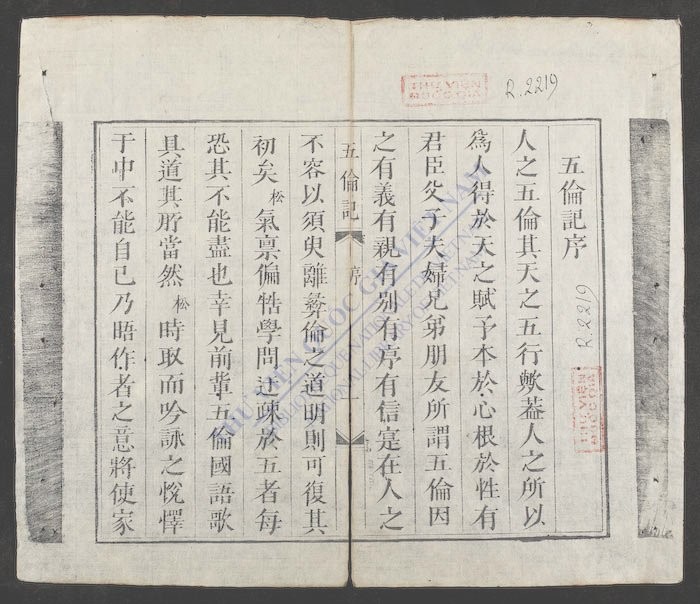 五倫記序
人之五倫其天之五行歟蓋人之所以
爲人得於天之賦予本於心根於性有
君臣父子夫婦兄弟朋友所謂五倫因
之有義有親有別有序有信寔在人之
五倫記 序 一
不容以須臾離彜倫之道明則可復其
初矣松氣禀偏牿學問迂疎於五者每
恐其不能盡也幸見前輩五倫國語歌
具道其所當然松時取而吟詠之悅懌
于中不能自已乃晤作者之意將使家
R.2219
R.2219
THƯ VIỆN QUỐC GIA VIỆT NAM
BIBLIOTHÈQUE NATIONALE DU VIETNAM
NATIONAL LIBRARY OF VIETNAM
THƯ VIỆN
QUỐC GIA
THƯ VIỆN
QUỐC GIA